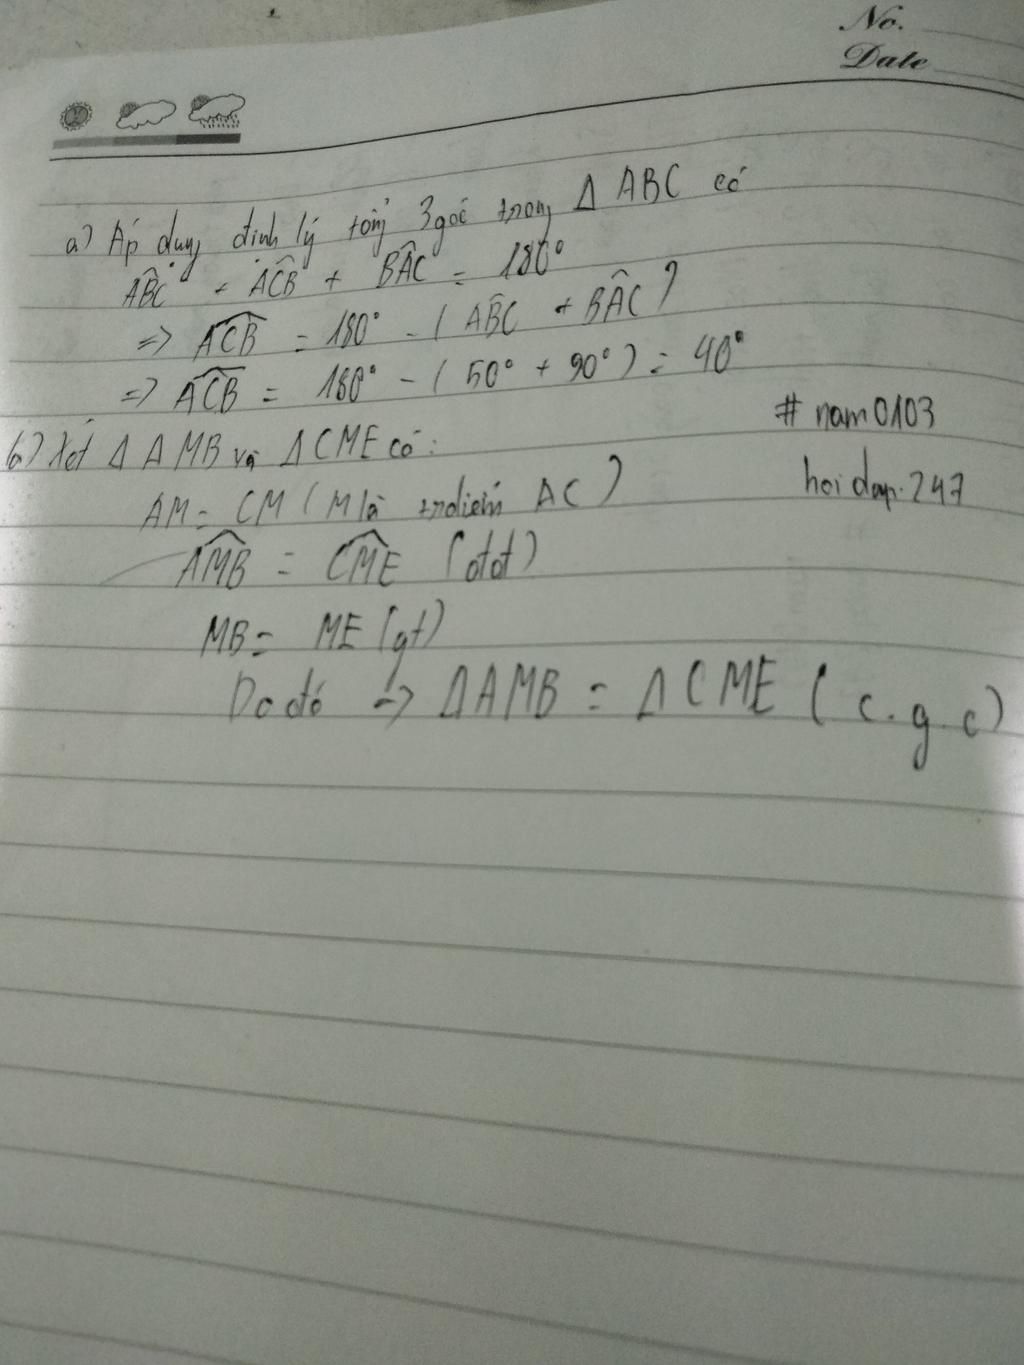 No.
Date
a) Áp dụng định lý tổng 3 góc trong Δ ABC có
ABC + ACB + BAC = 180°
=> ACB = 180° - ( ABC + BAC )
=> ACB = 180° - ( 50° + 90° ) = 40°
# nam0103
b) Xét Δ AMB và Δ CME có:
hoidap.247
AM = CM ( M là trđiểm AC )
AMB = CME (đđ)
MB = ME (gt)
Do đó => Δ AMB = Δ CME ( c.g.c)